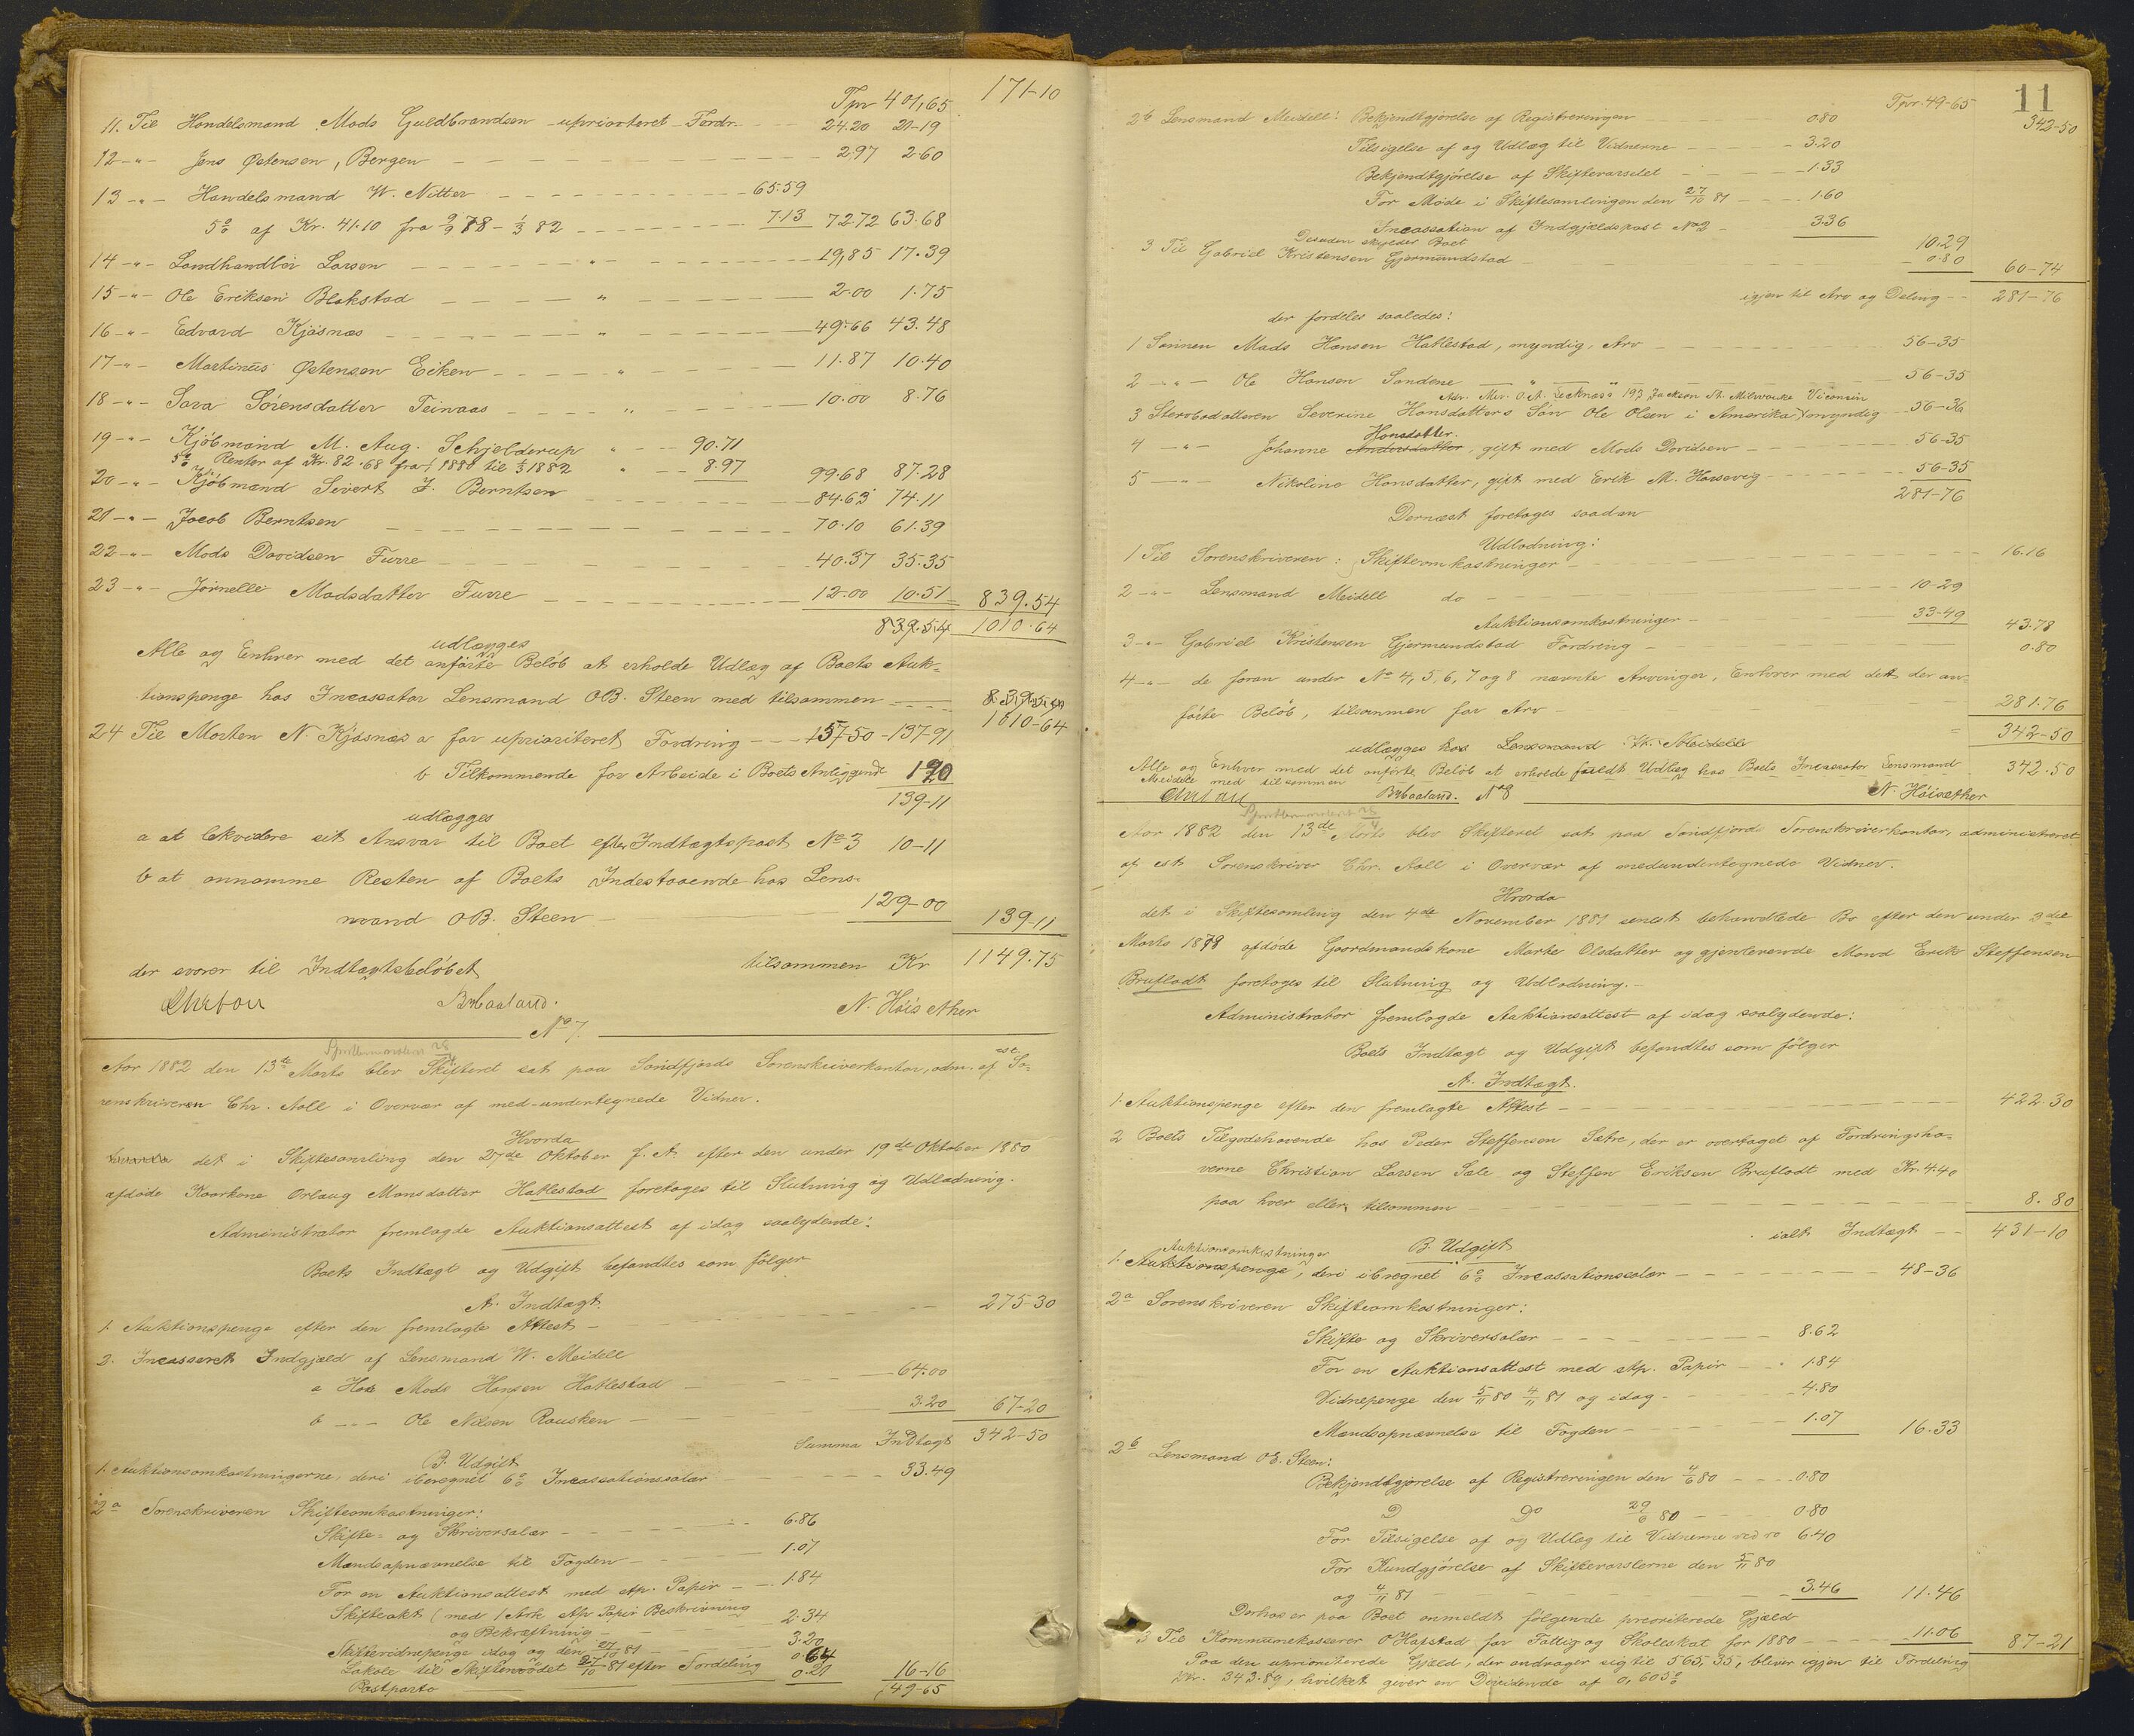 Tpr 401,65 171-10
11. Til Handelsmand Mads Guldbrandsen uprioriteret Fordr. 24.20 21-19
12 -"- Jens Østensen, Bergen 2.97 2.60
13 -"- Handelsmand W. Nitter 65.59
5% af Kr. 41.10 fra 9/9 78 - 1/3 82 7.13 72.72 63.68
14 -"- Landhandler Larsen " 19,85 17.39
15 -"- Ole Eriksen Blekstad " 2.00 1.75
16 -"- Edvard Kjøsnæs " 49.66 43.48
17 -"- Martinus Østensen Eiken " 11.87 10.40
18 -"- Sara Sørensdatter Teinaas " 10.00 8.76
19 -"- Kjøbmand M. Aug. Schjelderup " 90.71
5% Renter af Kr. 82.68 fra 1880 til 1882 " 8.97 99.68 87.28
20 -"- Kjøbmand Sivert J. Berntsen 84.63 74.11
21 -"- Jacob Berntsen 70.10 61.39
22 -"- Mads Davidsen Furre 40.37 35.35
23 -"- Jørnelle Madsdatter Furre 12.00 10.51 839.54
839.54 1010.64
udlægges
Alle og Enhver med det anførte Beløb at erholde Udlæg af Boets Auk-
tionspenge hos Incassator Lensmand O.B. Steen med tilsammen 839.54
1010-64
24 Til Morten N. Kjøsnæs a for uprioriteret Fordring 157-50 - 137-91
b Tilkommende for Arbeide i Boets Anliggende 1.20
139-11
udlægges
a at likvidere sit Ansvar til Boet efter Indtægtspost No 3 10-11
b at annamme Resten af Boets Indestaaende hos Lens-
mand O.B. Steen 129-00 139-11
der svarer til Indtægtsbeløbet tilsammen Kr 1149.75
Chr Aall B Haaland. N. Høisæther
No 7
Aar 1882 den 13de Marts blev Skifteret sat paa Søndfjords Sorenskriverkontor, adm. af cst. So-
renskriveren Chr. Aall i Overvær af med-undertegnede Vidner.
Hvorda
det i Skiftesamling den 27de Oktober f. A. efter den under 19de Oktober 1880
afdøde Kaarkone Orlaug Monsdatter Hatlestad foretoges til Slutning og Udlodning.
Administrator fremlagde Auktionsattest af idag saalydende:
Boets Indtægt og Udgift befandtes som følger
A. Indtægt.
1. Auktionspenge efter den fremlagte Attest 275-30
2. Incasseret Indgjæld af Lensmand W. Meidell
a Hos Mads Hansen Hatlestad 64.00
b -"- Ole Nilsen Rousken 3.20 67-20
Summa Indtægt 342-50
B. Udgift
1. Auktionsomkostningerne, deri iberegnet 6% Incassationssalær 33.49
2a Sorenskriveren Skifteomkostninger:
Skifte- og Skriversalær 6.86
Mandsopnævnelse til Fogden 1.07
For en Auktionsattest med stp. Papir 1.84
Skifteakt (med 1 Ark stp Papir Beskrivning
og Bekræftning 2.34
Skiftevidnepenge idag og den 27/10 81 3.20
Lokale til Skiftemødet 27/10 81 efter Fordeling 0.64
Postporto 0.20 16-16
49-65
Tpr. 49-65 11
342-50
2b Lensmand Meidell: Bekjendtgjørelse af Registreringen 0.80
Tilsigelse af og Udlæg til Vidnerne 3.20
Bekjendtgjørelse af Skiftevarselet 1.33
For Møde i Skiftesamlingen den 27/10 81 1.60
Incassation af Indgjældspost No 2 3.36 10.29
Desuden skylder Boet
3 Til Gabriel Kristensen Gjermundstad 0.80 60-74
igjen til Arv og Deling 281-76
der fordeles saaledes:
1 Sønnen Mads Hansen Hatlestad, myndig, Arv 56-35
2 -"- Ole Hansen Sandene " " 56-35
Adr. Mr. O.A. Lecknæss 193 Jackson St. Milwauke Viconsin
3 Stervbodatteren Severine Hansdatters Søn Ole Olsen i Amerika, myndig 56-36
Hansdatter.
4 -"- Johanne Andersdatter, gift med Mads Davidsen 56-35
5 -"- Nikoline Hansdatter, gift med Erik M. Horsevig 56-35
281-76
Dernæst foretoges saadan
Udlodning:
1 Til Sorenskriveren: Skifteomkostninger 16.16
2 -"- Lensmand Meidell do 10-29
Auktionsomkostninger 33-49 43.78
3 -"- Gabriel Kristensen Gjermundstad Fordring 0.80
4 -"- de foran under No 4, 5, 6, 7 og 8 nævnte Arvinger, Enhver med det der an-
førte Beløb, tilsammen for Arv 281.76
342-50
udlægges hos Lensmand W. Meidell
Alle og Enhver med det anførte Beløb at erholde fuldt Udlæg hos Boets Incassator Lensmand
Meidell med tilsammen 342.50
Chr Aall B Haaland. No 8 N. Høisæther
Aar 1882 den 13de Marts blev Skifteret sat paa Søndfjords Sorenskriverkontor, administreret
af cst. Sorenskriver Chr. Aall i Overvær af medundertegnede Vidner.
Hvorda
det i Skiftesamling den 4de November 1881 senest behandlede Bo efter den under 3die
Marts 1879 afdøde Gaardmandskone Marte Olsdatter og gjenlevende Mand Erik Steffensen
Brufladt foretoges til Slutning og Udlodning.
Administrator fremlagde Auktionsattest af idag saalydende:
Boets Indtægt og Udgift befandtes som følger
A. Indtægt.
1. Auktionspenge efter den fremlagte Attest 422.30
2 Boets Tilgodehavende hos Peder Steffensen Sætre, der er overtaget af Fordringsha-
verne Christian Larsen Sæle og Steffen Eriksen Brufladt med Kr. 4.40
paa hver eller tilsammen 8.80
ialt Indtægt 431-10
B. Udgift
Auktionsomkostninger
1. Auktionspenge, deri iberegnet 6% Incassationssalær 48-36
2a Sorenskriveren Skifteomkostninger:
Skifte og Skriversalær 8.62
For en Auktionsattest med stp. Papir 1.84
Vidnepenge den 5/11 80 4/11 81 og idag 4.80
Mandsopnævnelse til Fogden 1.07 16.33
2b Lensmand O.B. Steen:
Bekjendtgjørelse af Registreringen den 4/6 80 0.80
D Do 29/6 80 0.80
For Tilsigelse af og Udlæg til Vidnerne 6.40
For Kundgjørelse af Skiftevarslerne den 5/11 80
og 4/11 81 3.46 11.46
Derhos er paa Boet anmeldt følgende prioriterede Gjæld
3 Til Kommunekasserer O Hafstad for Fattig og Skoleskat for 1880 11.06 87-21
Paa den uprioriterede Gjæld, der andrager sig til 565,35, bliver igjen til Fordeling
Kr. 343.89, hvilket giver en Dividende af 0,605%